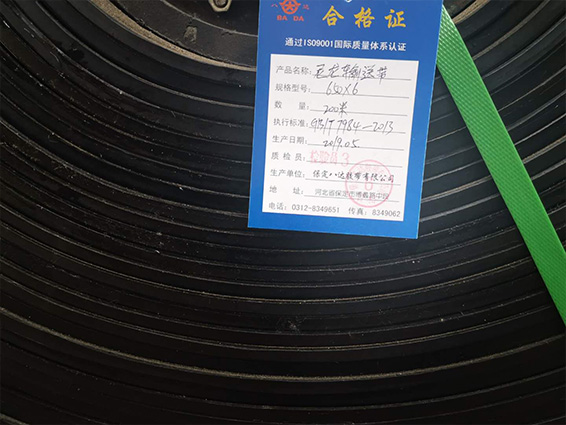 八达
BA DA
合格证
通过ISO9001国际质量体系认证
产品名称: 尼龙输送带
规格型号: 650×6
数 量: 200米
执行标准: GB/T 7984—2013
生产日期: 2019.05
质 检 员: 检验员3
生产单位: 保定八达胶带有限公司
地 址: 河北省保定市博野路中段
电话: 0312-8349651 传真: 8349062